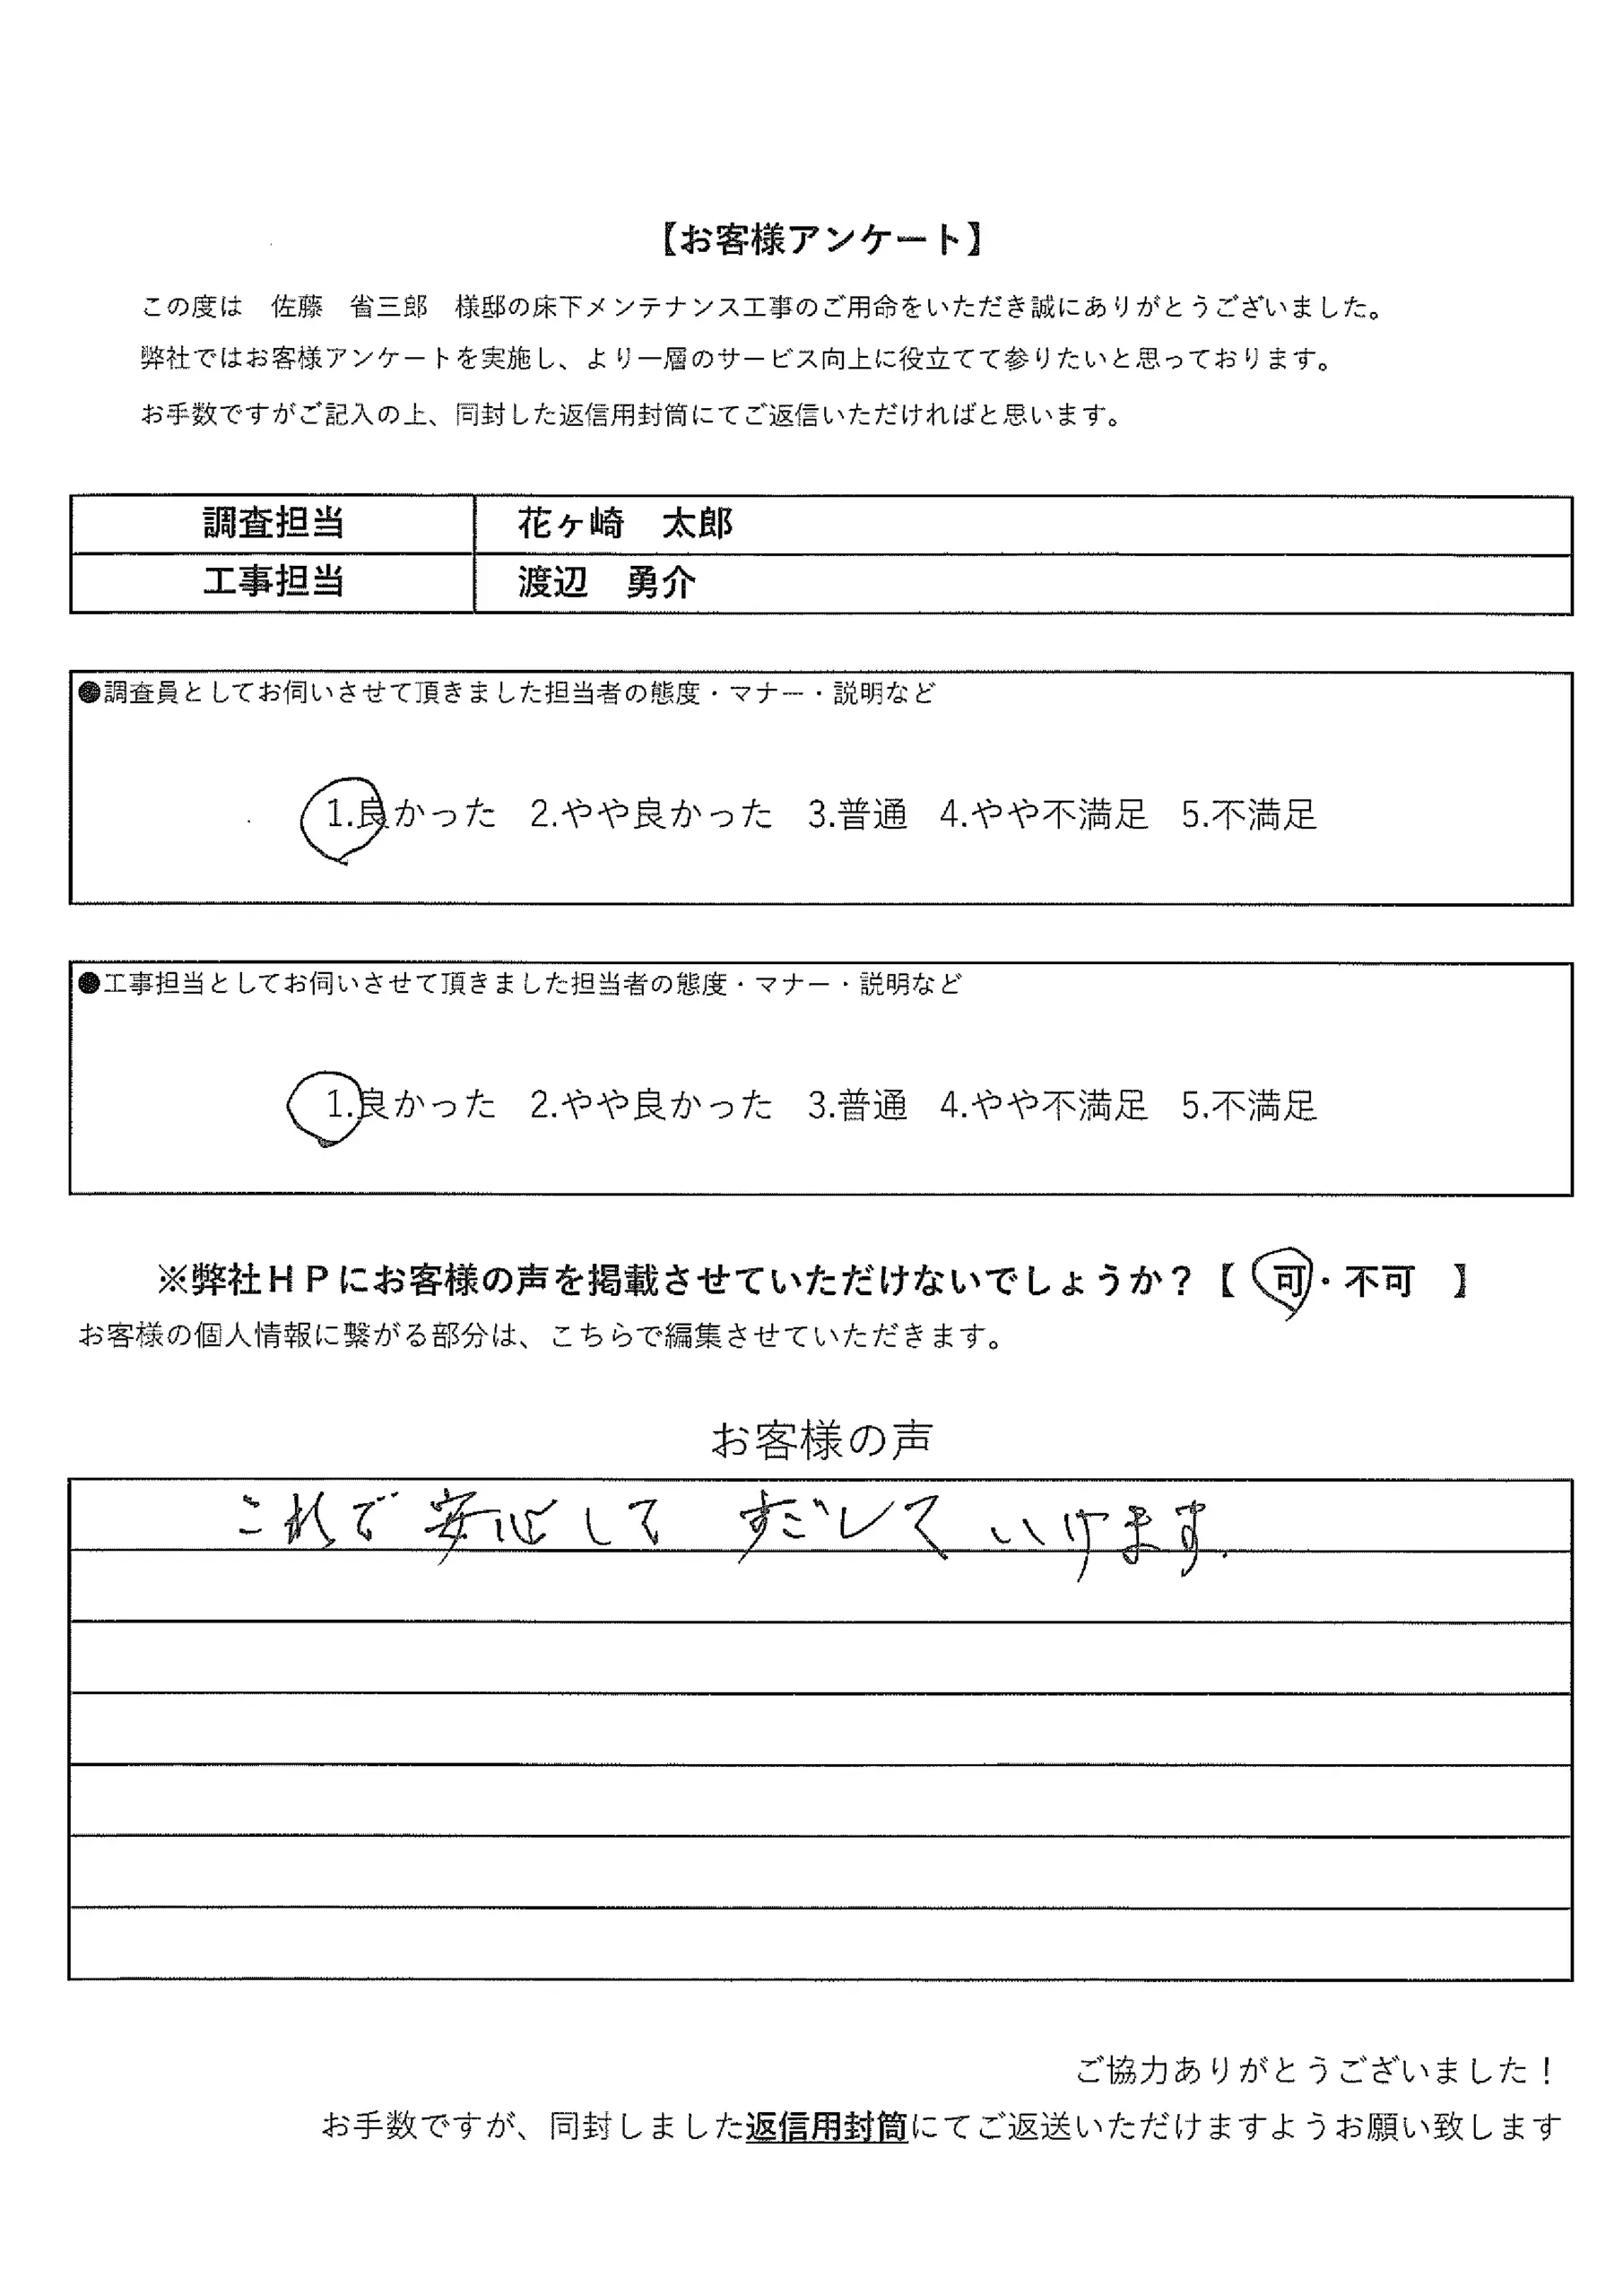 【お客様アンケート】
この度は　佐藤　省三郎　様邸の床下メンテナンス工事のご用命をいただき誠にありがとうございました。
弊社ではお客様アンケートを実施し、より一層のサービス向上に役立てて参りたいと思っております。
お手数ですがご記入の上、同封した返信用封筒にてご返信いただければと思います。
調査担当　花ヶ崎　太郎
工事担当　渡辺　勇介
●調査員としてお伺いさせて頂きました担当者の態度・マナー・説明など
1.良かった　2.やや良かった　3.普通　4.やや不満足　5.不満足
●工事担当としてお伺いさせて頂きました担当者の態度・マナー・説明など
1.良かった　2.やや良かった　3.普通　4.やや不満足　5.不満足
※弊社ＨＰにお客様の声を掲載させていただけないでしょうか？【　可・不可　】
お客様の個人情報に繋がる部分は、こちらで編集させていただきます。
お客様の声
これで安心して すごして いけます.
ご協力ありがとうございました！
お手数ですが、同封しました返信用封筒にてご返送いただけますようお願い致します